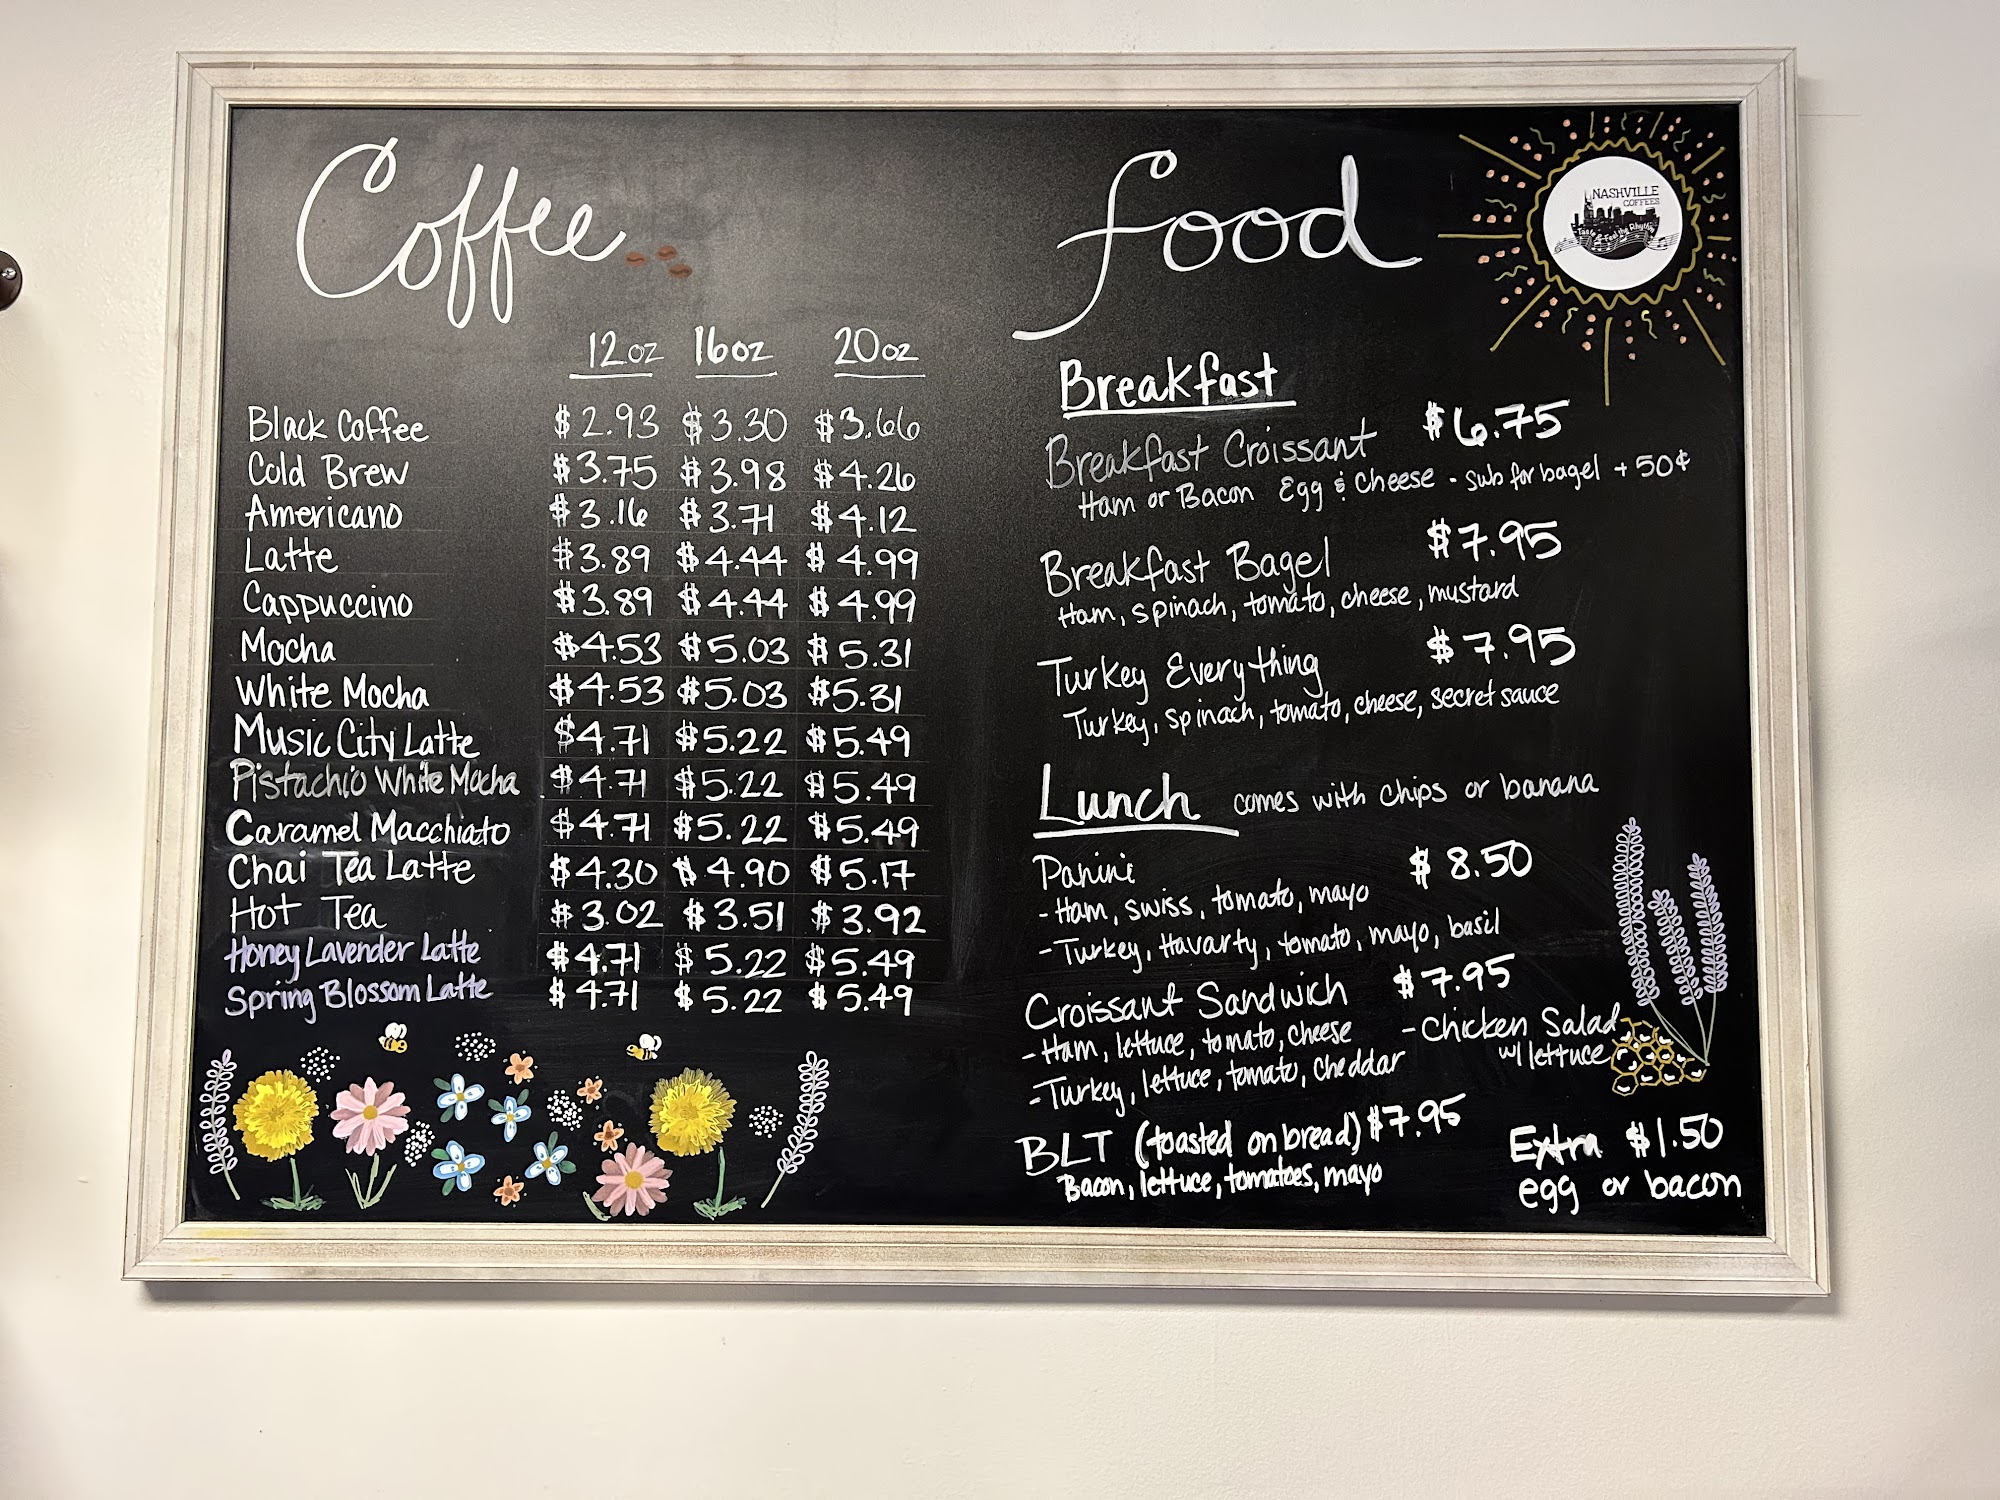 Coffee
12oz 16oz 20oz
Black Coffee $2.93 $3.30 $3.66
Cold Brew $3.75 $3.98 $4.26
Americano $3.16 $3.71 $4.12
Latte $3.89 $4.44 $4.99
Cappuccino $3.89 $4.44 $4.99
Mocha $4.53 $5.03 $5.31
White Mocha $4.53 $5.03 $5.31
Music City Latte $4.71 $5.22 $5.49
Pistachio White Mocha $4.71 $5.22 $5.49
Caramel Macchiato $4.71 $5.22 $5.49
Chai Tea Latte $4.30 $4.90 $5.17
Hot Tea $3.02 $3.51 $3.92
Honey Lavender Latte $4.71 $5.22 $5.49
Spring Blossom Latte $4.71 $5.22 $5.49
food
NASHVILLE
COFFEES
Taste & Feel the Rhythm
Breakfast
Breakfast Croissant $6.75
Ham or Bacon Egg & Cheese - sub for bagel + 50¢
Breakfast Bagel $7.95
Ham, spinach, tomato, cheese, mustard
Turkey Everything $7.95
Turkey, spinach, tomato, cheese, secret sauce
Lunch comes with chips or banana
Panini $8.50
- Ham, swiss, tomato, mayo
- Turkey, Havarty, tomato, mayo, basil
Croissant Sandwich $7.95
- Ham, lettuce, tomato, cheese
- Turkey, lettuce, tomato, cheddar
- Chicken Salad
w/ lettuce
BLT (toasted on bread) $7.95
Bacon, lettuce, tomatoes, mayo
Extra $1.50
egg or bacon